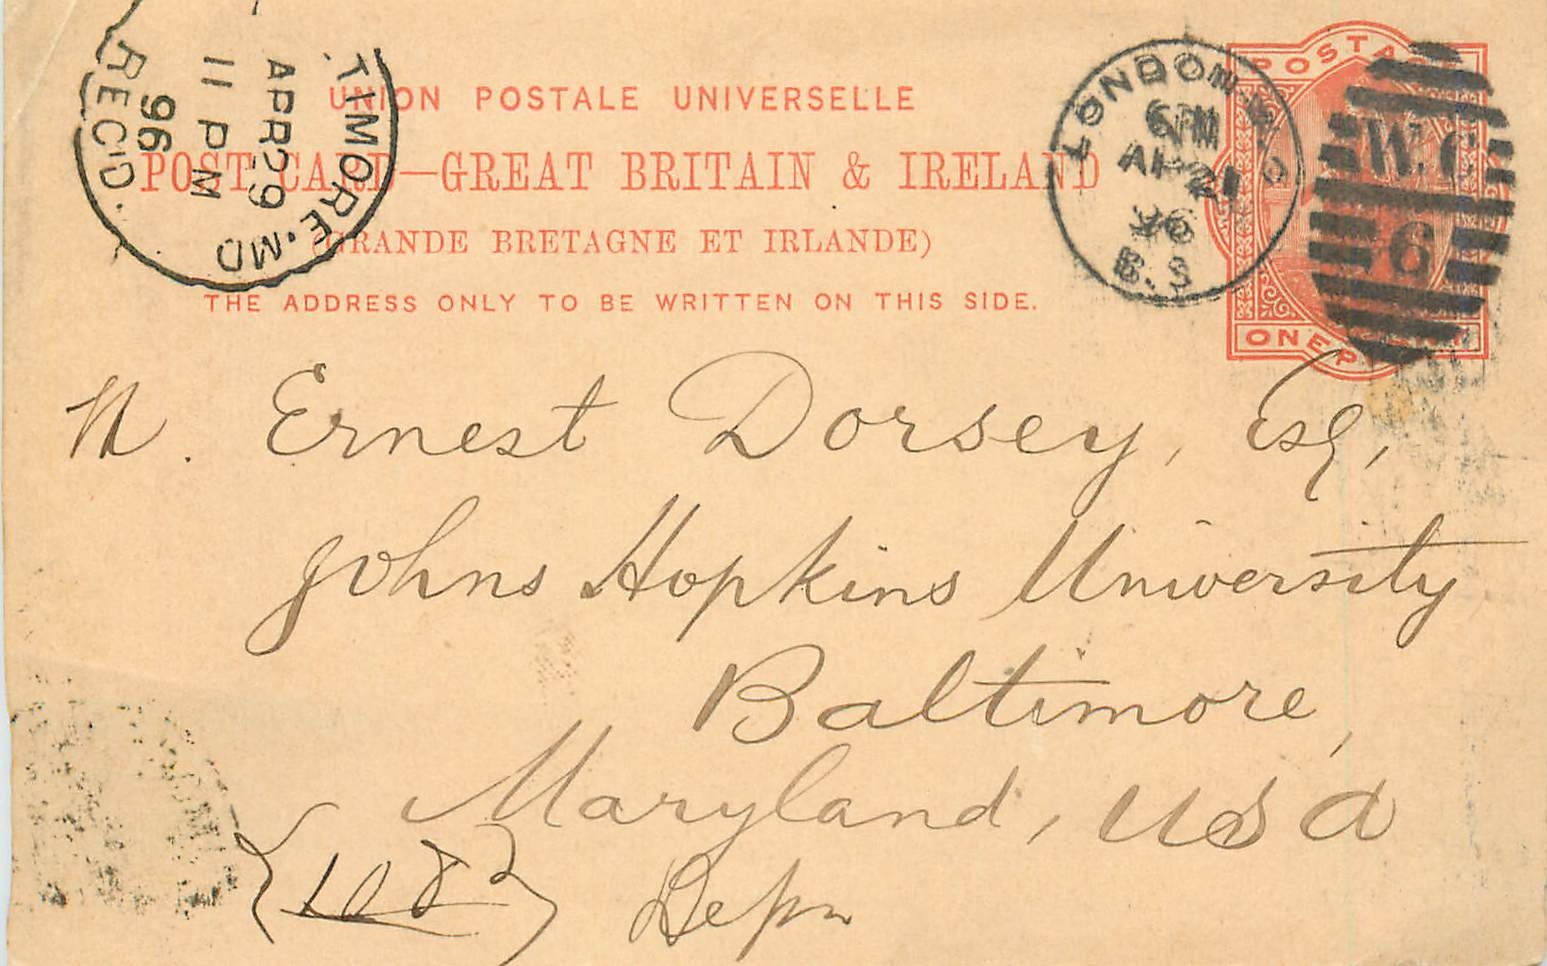 UNION POSTALE UNIVERSELLE
POST CARD—GREAT BRITAIN & IRELAND
(GRANDE BRETAGNE ET IRLANDE)
THE ADDRESS ONLY TO BE WRITTEN ON THIS SIDE.
TIMORE.MD
APR 29
11 PM
96
REC'D.
LONDON.W.C
6 PM
AP 21
96
B.S
W.C
6
POSTA
ONE P
N. Ernest Dorsey, Esq,
Johns Hopkins University
Baltimore,
Maryland, USA
108